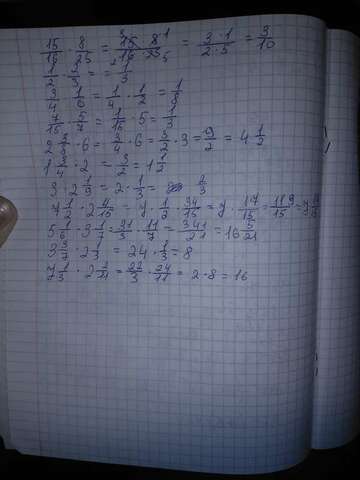 15/16 · 8/25 = 15 · 8/16 · 25 = 3 · 1/2 · 5 = 3/10
1/2 · 2/3 = 1/3
3/4 · 1/6 = 1/4 · 1/2 = 1/8
7/15 · 5/7 = 1/15 · 5 = 1/3
· 6 = 3/4 · 6 = 3/2 · 3 = 9/2 = 4 1/2
· 2 = 3/2 = 1 1/2
3 · 2 1/9 = 2 · 1/3 = 2/3
7 1/2 · 2 4/15 = 7 · 1/2 · 34/15 = 7 · 17/15 = 119/15 =
5 1/6 · 3 1/7 = 31/3 · 11/7 = 341/21 = 16 5/21
3 3/7 · 2 1/3 = 24 · 1/3 = 8
7 1/3 · 2 2/21 = 22/3 · 24/11 = 2 · 8 = 16